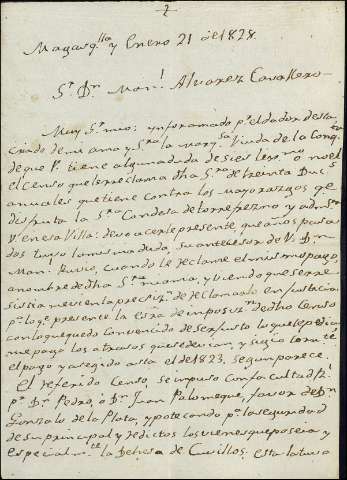 2
Magasq.lla y Enero 21 de 1828.
S.r D.n Man.l Alvarez Cavallero
Muy S.r mio: ynformado p.r el dador desta
criado de mi ama y S.ra la Marq.sa Viuda de la Conq.ta
de que V. tiene alguna duda de si es lexmo o no el
el Censo que le reclama dha S.ra de treinta Duc.s
anuales que tiene contra los mayorazgos qe
disfruta la S.ra Condesa de torrefrezno y adm.on
V. en esa Villa: devo acerle presente, que años pasa
dos tuvo la misma duda su antecesor de V. D.n
Man.l Ruvio, cuando le reclame el mismo pago,
a nombre de dha S.ra mi ama, y viendo que se rre
sistia me vi en la precis.on de reclamarlo en justicia
p.a lo q.e presente la Esra de imposiz.on de dho Censo
con lo que quedo convencido de ser justo lo que le pedia,
me pago los atrasos que se devian, y
el pago y a seguido asta el de 1823, segun parece.
El referido Censo, se impuso con facultad R.l
p.r D.n Pedro, o D.n Juan Palomeque, a favor de D.n
Gonzalo de la Plata, ypotecando p.a la seguridad
de su principal y redictos los vienes que poseia y
especialm.te la Dehesa de Cuvillos, esta la tuvo